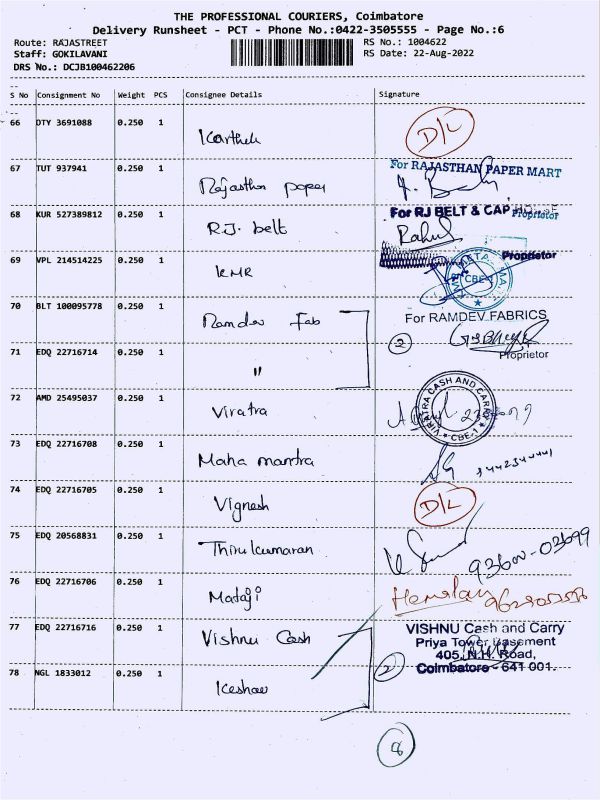 THE PROFESSIONAL COURIERS, Coimbatore
Delivery Runsheet - PCT - Phone No.:0422-3505555 - Page No.:6
Route: RAJASTREET RS No.: 1004622
Staff: GOKILAVANI RS Date: 22-Aug-2022
DRS No.: DCJB100462206
S No Consignment No Weight PCS Consignee Details Signature
66 DTY 3691088 0.250 1 Karthik D/L
67 TUT 937941 0.250 1 Rajasthan paper For RAJASTHAN PAPER MART
Proprietor
68 KUR 527389812 0.250 1 R.J. belt For RJ BELT & CAP HOUSE
Rahul
Proprietor
69 VPL 214514225 0.250 1 KMR CBE-1
70 BLT 100095778 0.250 1 Ramdev Fab For RAMDEV FABRICS
2
Proprietor
71 EDQ 22716714 0.250 1 "
72 AMD 25495037 0.250 1 Viratra VIRATRA CASH AND CARRY CBE-1
73 EDQ 22716708 0.250 1 Maha mantra
74 EDQ 22716705 0.250 1 Vignesh D/L
75 EDQ 20568831 0.250 1 Thirukumaran 93600-03699
76 EDQ 22716706 0.250 1 Mataji
77 EDQ 22716716 0.250 1 Vishnu Cash VISHNU Cash and Carry
Priya Tower Basement
405, N.H. Road,
Coimbatore - 641 001.
78 NGL 1833012 0.250 1 Keshav 2
8